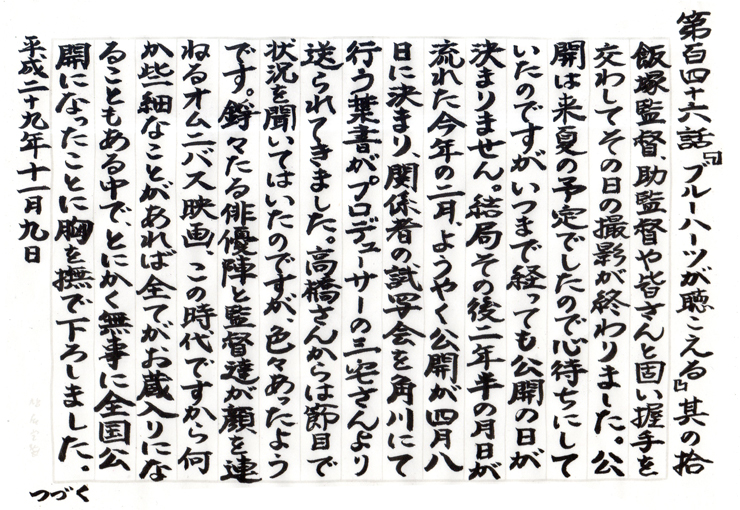 第百四十六話『ブルーハーツが聴こえる』其の拾
飯塚監督、助監督や皆さんと固い握手を
交わしてその日の撮影が終わりました。公
開は来夏の予定でしたので心待ちにして
いたのですがいつまで経っても公開の日が
決まりません。結局その後二年半の月日が
流れた今年の二月、ようやく公開が四月八
日に決まり関係者の試写会を角川にて
行う葉書が、プロデューサーの三宅さんより
送られてきました。高橋さんからは節目で
状況を聞いてはいたのですが、色々あったよう
です。錚々たる俳優陣と監督達が顔を連
ねるオムニバス映画、この時代ですから何
か些細なことがあれば全てがお蔵入りにな
ることもある中で、とにかく無事に全国公
開になったことに胸を撫で下ろしました。
平成二十九年十一月九日
つづく